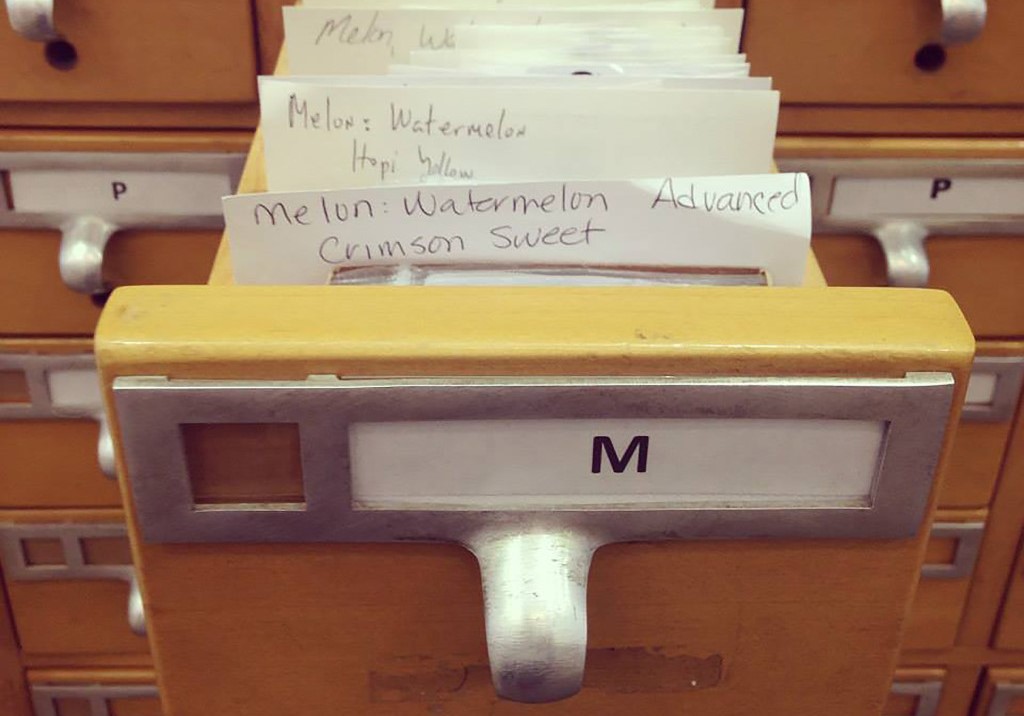 Melon, Wa
Melon: Watermelon
Hopi Yellow
P
P
Melon: Watermelon Advanced
Crimson Sweet
M